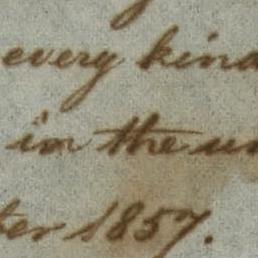 every kind
in the un
ter 1857.